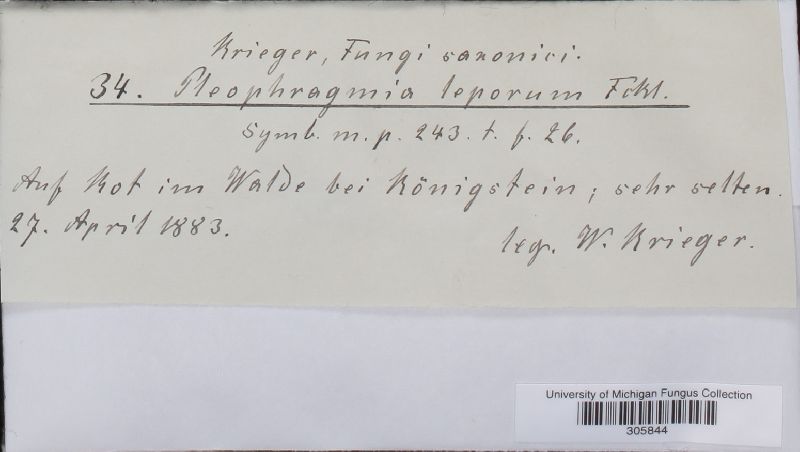 Krieger, Fungi saxonici.
34. Pleophragmia leporum Fckl.
Symb. m. p. 243. t. f. 26.
Auf Kot im Walde bei Königstein; sehr selten.
27. April 1883.
leg. W. Krieger.
University of Michigan Fungus Collection
305844